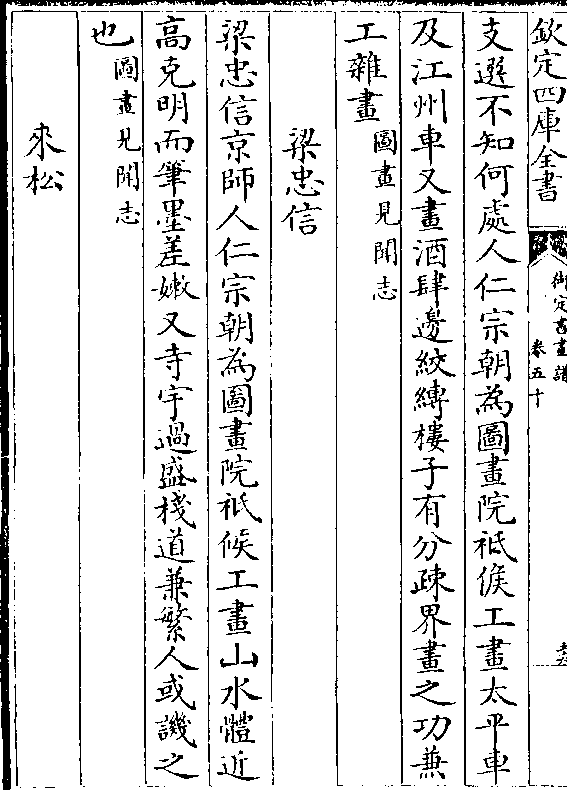 欽定四庫全書
御定書畫譜
卷五十
支選不知何處人仁宗朝為圖畫院祗候工畫太平車
及江州車又畫酒肆邊絞縛樓子有分疎界畫之功兼
工雜畫圖畫見聞志
梁忠信
梁忠信京師人仁宗朝為圖畫院祗候工畫山水體近
高克明而筆墨差嫩又寺宇過盛棧道兼繁人或譏之
也圖畫見聞志
來松